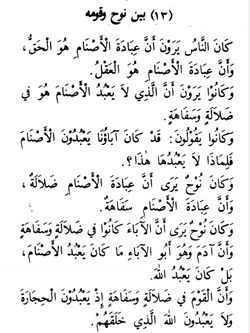 (١٣) بين نوح وقومه
كَانَ النَّاسُ يَرَوْنَ أَنَّ عِبَادَةَ الْأَصْنَامِ هُوَ الْحَقُّ،
وَأَنَّ عِبَادَةَ الْأَصْنَامِ هُوَ الْعَقْلُ.
وَكَانُوا يَرَوْنَ أَنَّ الَّذِي لَا يَعْبُدُ الْأَصْنَامَ هُوَ فِي
ضَلَالَةٍ وَسَفَاهَةٍ.
وَكَانُوا يَقُولُونَ: قَدْ كَانَ آبَاؤُنَا يَعْبُدُونَ الْأَصْنَامَ
فَلِمَاذَا لَا يَعْبُدُهَا هٰذَا؟.
وَكَانَ نُوحٌ يَرَى أَنَّ عِبَادَةَ الْأَصْنَامِ ضَلَالَةٌ،
وَأَنَّ عِبَادَةَ الْأَصْنَامِ سَفَاهَةٌ.
وَكَانَ نُوحٌ يَرَى أَنَّ الْآبَاءَ كَانُوا فِي ضَلَالَةٍ وَسَفَاهَةٍ
وَأَنَّ آدَمَ وَهُوَ أَبُو الْآبَاءِ مَا كَانَ يَعْبُدُ الْأَصْنَامَ،
بَلْ كَانَ يَعْبُدُ اللهَ.
وَأَنَّ الْقَوْمَ فِي ضَلَالَةٍ وَسَفَاهَةٍ إِذْ يَعْبُدُوْنَ الْحِجَارَةَ
وَلَا يَعْبُدُونَ اللهَ الَّذِي خَلَقَهُمْ.